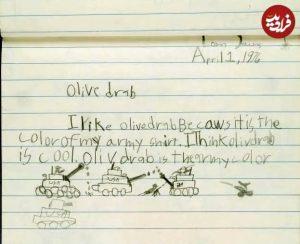 فرادید
April 1, 1996
Olive drab
I like olive drab Becaws it is the
color of my army shirt. I Think olivdrab
is cool. Oliv drab is the army color
USA
USA